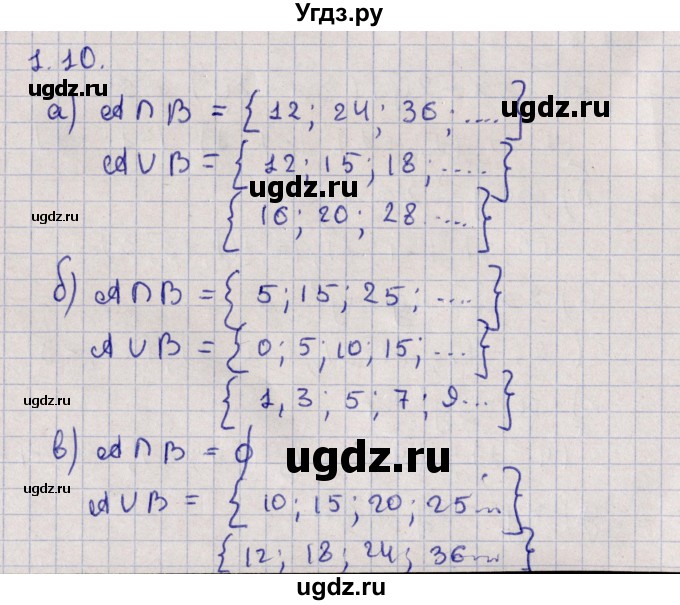 Угдз.ру
1.10.
ugdz.ru
ugdz.ru
а) A ∩ B = { 12; 24; 36; .... }
ugdz.ru
A ∪ B = { 12; 15; 18; ..... }
ugdz.ru
ugdz.ru
{ 16; 20; 28 .... }
ugdz.ru
б) A ∩ B = { 5; 15; 25; .... }
ugdz.ru
A ∪ B = { 0; 5; 10; 15; ... }
ugdz.ru
ugdz.ru
{ 1, 3; 5; 7; 9... }
в) A ∩ B = ∅
ugdz.ru
ugdz.ru
ugdz.ru
A ∪ B = { 10; 15; 20; 25... }
{ 12; 18; 24; 36... }
ugdz.ru